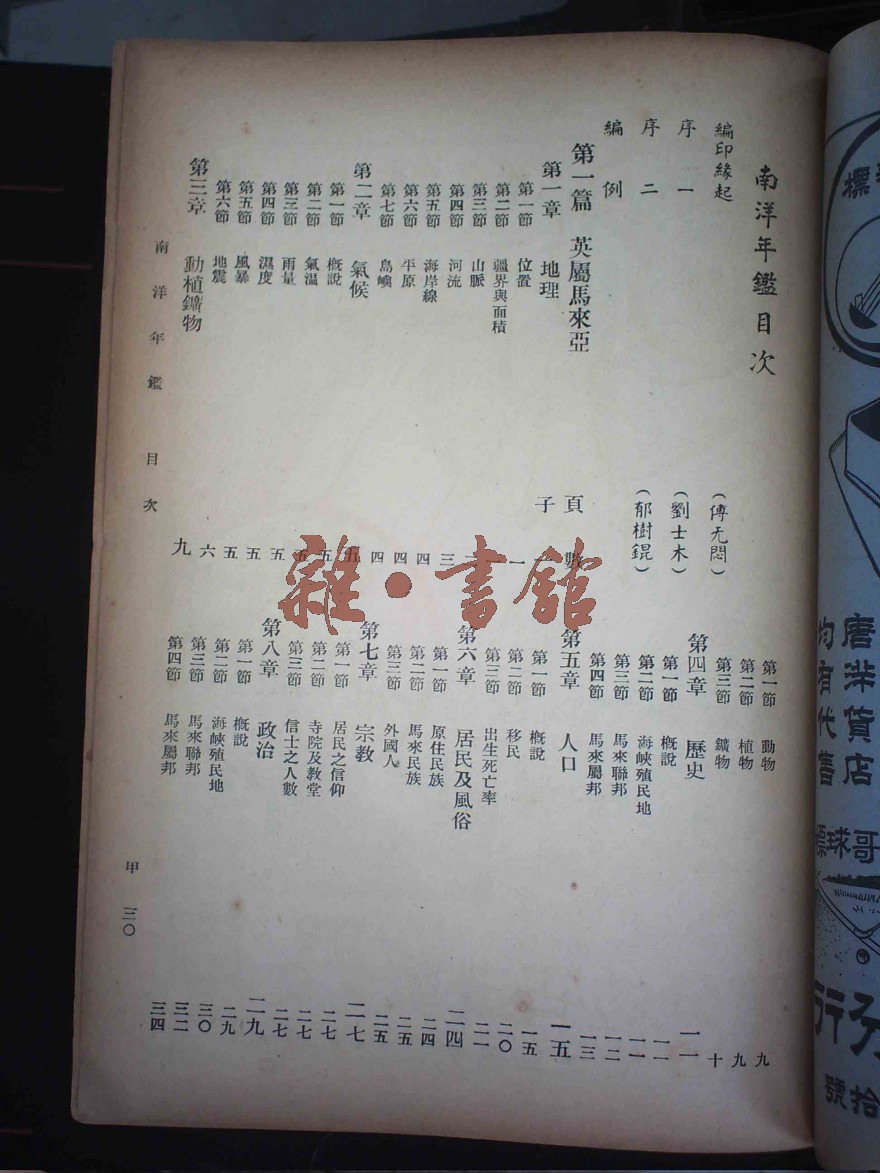 南洋年鑑目次
編印緣起 (傅无悶)
序一 (劉士木)
序二 (郁樹錕)
編例
第一篇 英屬馬來亞 頁數
子
第一章 地理
第一節 位置 一
第二節 疆界與面積
第三節 山脈
第四節 河流 三
第五節 海岸線 四
第六節 平原 四
第七節 島嶼 四
第二章 氣候 五
第一節 概說 五
第二節 氣溫 五
第三節 雨量 五
第四節 濕度 五
第五節 風暴 五
第六節 地震 六
第三章 動植鑛物 九
第一節 動物 九
第二節 植物 九
第三節 鑛物 十
第四章 歷史 一一
第一節 概說 一一
第二節 海峽殖民地 一一
第三節 馬來聯邦 一二
第四節 馬來屬邦 一三
第五章 人口 一五
第一節 概說 一五
第二節 移民 二〇
第三節 出生死亡率 二一
第六章 居民及風俗 二四
第一節 原住民族 二四
第二節 馬來民族 二五
第三節 外國人 二五
第七章 宗教 二七
第一節 居民之信仰 二七
第二節 寺院及教堂 二七
第三節 信士之人數 二七
第八章 政治 二九
第一節 概說 二九
第二節 海峽殖民地 三〇
第三節 馬來聯邦 三二
第四節 馬來屬邦 三四
南洋年鑑 目次
甲 三〇
雜·書館
標
唐洋貨店
均有代售
標球哥
行
號拾